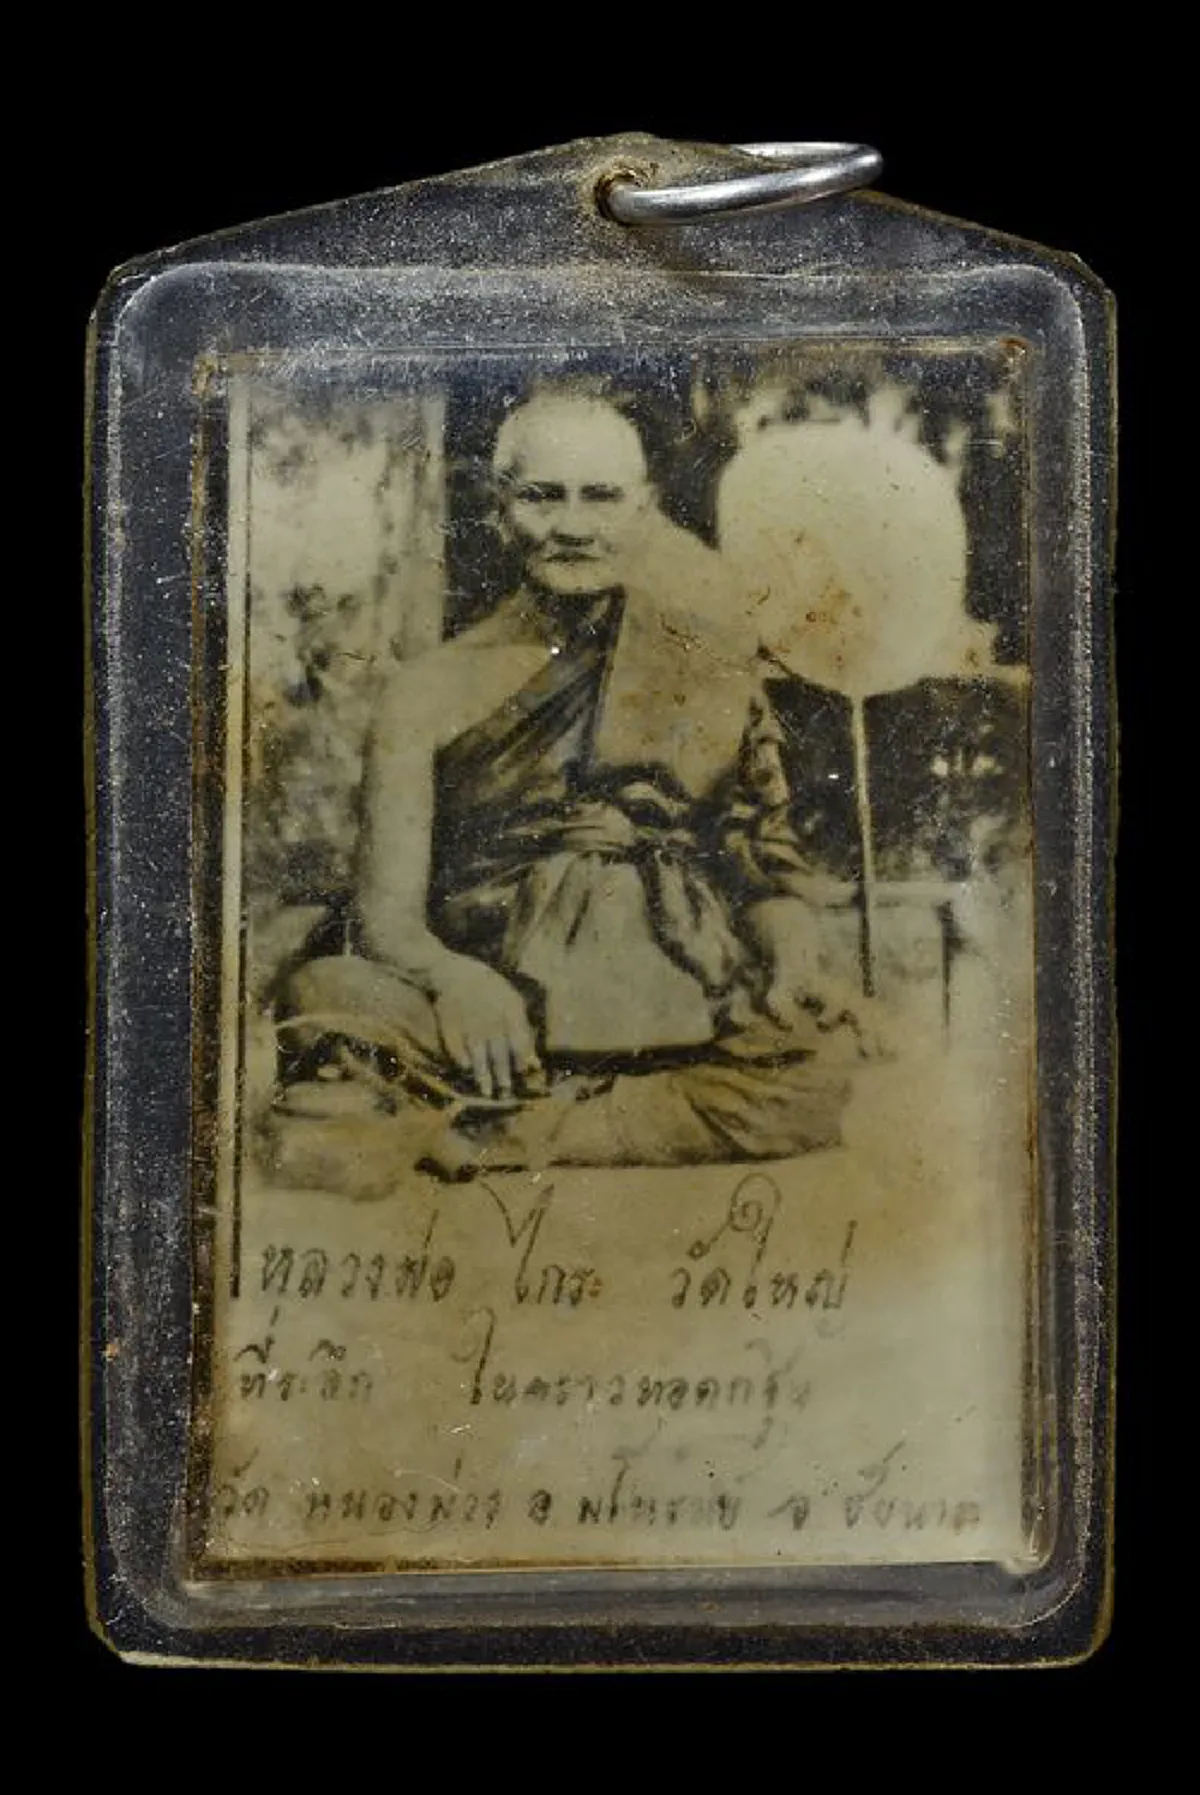 หลวงพ่อ ไกระ วัดใหญ่
ที่ระลึก ในคราวทอดกฐิน
วัด หนองม่วง อ มโนรมย์ จ ชัยนาท